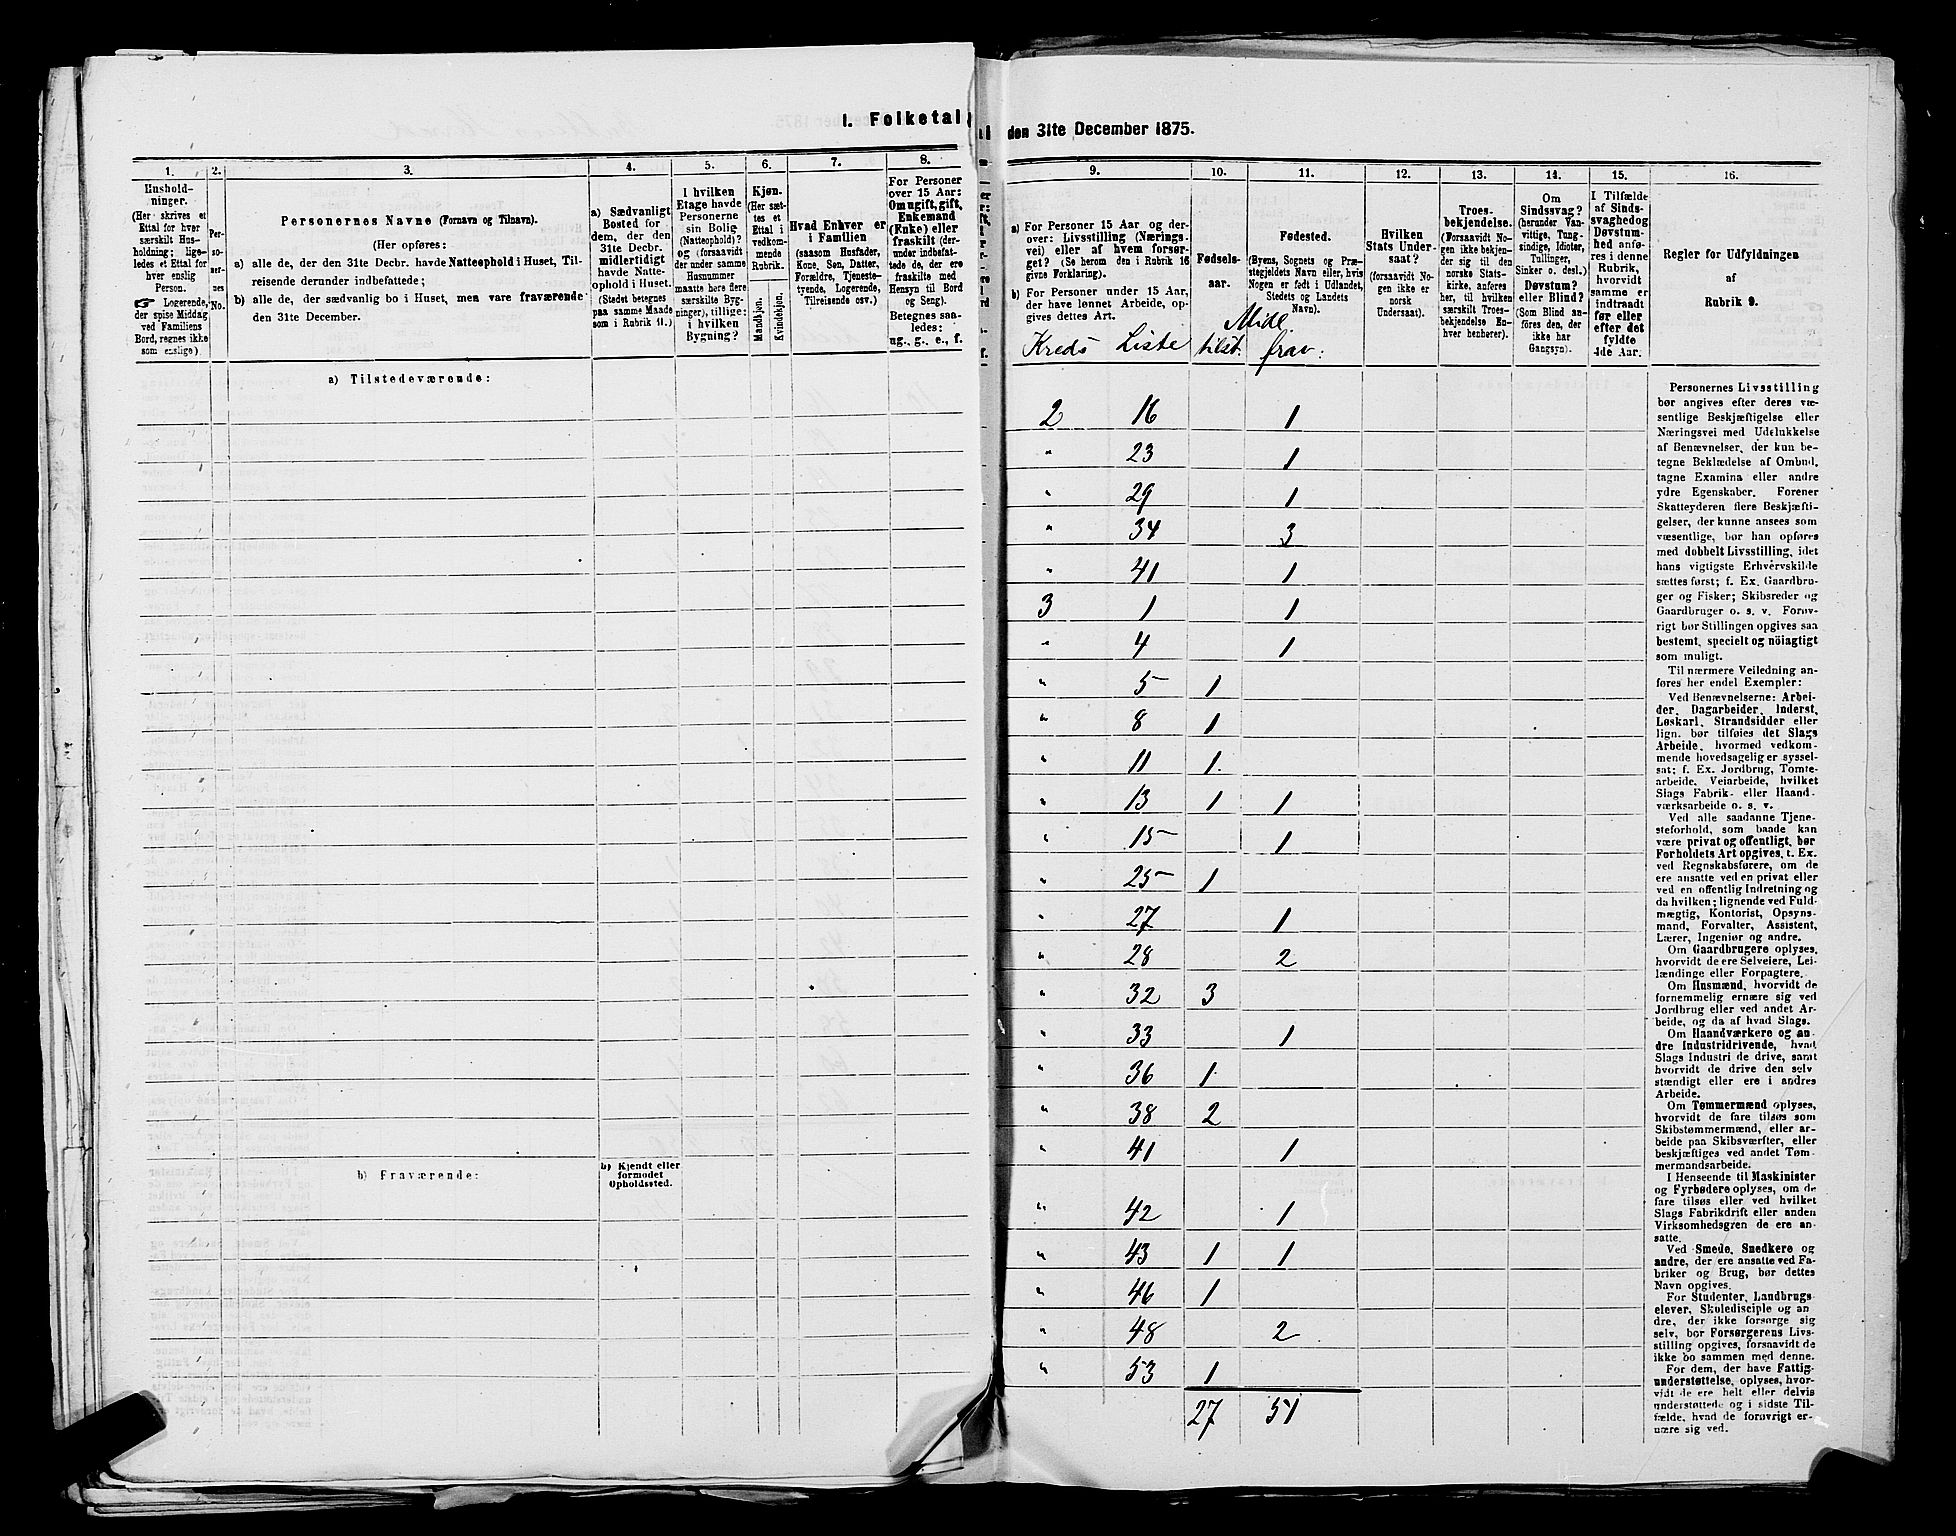 I. Folketal
1.
2.
3.
4.
5.
6.
7.
8.
Hushold-
ninger.
(Her skrives et
Ettal for hver
særskilt Hus-
holdning; lige-
ledes et Ettal for
hver enslig
Person.
☞ Logerende,
der spise Middag
ved Familiens
Bord, regnes ikke
som enslige).
Per-
so-
ner-
nes
No.
Personernes Navne (Fornavn og Tilnavn).
(Her opføres:
a) alle de, der den 31te Decbr. havde Natteophold i Huset, Til-
reisende derunder indbefattede;
b) alle de, der sædvanlig bo i Huset, men vare fraværende
den 31te December.
a) Sædvanligt
Bosted for
dem, der den
31te Decbr.
midlertidigt
havde Natte-
ophold i Huset.
(Stedet betegnes
paa samme Maade
som i Rubrik 11.)
I hvilken
Etage havde
Personerne
sin Bolig
(Natteophold)?
og (forsaavidt
der under samme
Husnummer
maatte høre flere
særskilte Byg-
ninger), tillige:
i hvilken
Bygning?
Kjøn.
(Her sæt-
tes et
Ettal i
vedkom-
mende
Rubrik.
Mandkjøn.
Kvindekjøn.
Hvad Enhver er
i Familien
(saasom Husfader,
Kone, Søn, Datter,
Forældre, Tjeneste-
tyende, Logerende,
Tilreisende osv.)
For Personer
over 15 Aar:
Om ugift, gift,
Enkemand
(Enke) eller
fraskilt (der-
under indbefat-
tede de, der ere
fraskilte med
Hensyn til Bord
og Seng).
Betegnes saa-
ledes:
ug., g., e., f.
a) Tilstedeværende:
b) Fraværende:
b) Kjendt eller
formodet
Opholdssted.
den 31te December 1875.
9.
10.
11.
12.
13.
14.
15.
16.
a) For Personer 15 Aar og der-
over: Livsstilling (Nærings-
vei) eller af hvem forsør-
get? (Se herom den i Rubrik 16
givne Forklaring).
b) For Personer under 15 Aar,
der have lønnet Arbeide, op-
gives dettes Art.
Fødsels-
aar.
Fødested.
(Byens, Sognets og Præ-
stegjeldets Navn eller, hvis
Nogen er født i Udlandet,
Stedets og Landets
Navn).
Hvilken
Stats Under-
saat?
(forsaavidt No-
gen ikke er
norsk
Undersaat).
Troes-
bekjendelse.
(Forsaavidt No-
gen ikke bekjen-
der sig til den
norske Stats-
kirke, anføres
her, til hvilken
særskilt Troes-
bekjendelse En-
hver henhører).
Om
Sindssvag?
(herunder Van-
vittige, Tung-
sindige, Idioter,
Tullinger,
Sinker o. desl.)
Døvstum?
eller Blind?
(Som Blind an-
føres den, der
ikke har
Gangsyn).
I Tilfælde
af Sinds-
svaghed og
Døvstum-
hed anfø-
res i denne
Rubrik,
hvorvidt
samme er
indtraadt
før eller
efter det
fyldte
4de Aar.
Regler for Udfyldningen
af
Rubrik 9.
Midl.
Kreds Liste tilst. frav:
2 16 1
" 23 1
" 29 1
" 34 3
" 41 1
3 1 1
" 4 1
" 5 1
" 8 1
" 11 1
" 13 1 1
" 15 1
" 25 1
" 27 1
" 28 2
" 32 3
" 33 1
" 36 1
" 38 2
" 41 1
" 42 1
" 43 1 1
" 46 1
" 48 2
" 53 1
27 51
Personernes Livsstilling
bør angives efter deres væ-
sentlige Beskjæftigelse eller
Næringsvei med Udelukkelse
af Benævnelser, der kun be-
tegne Beklædelse af Ombud,
tagne Examina eller andre
ydre Egenskaber. Forener
Skatteyderen flere Beskjæfti-
gelser, der kunne ansees som
væsentlige, bør han opføres
med dobbelt Livsstilling, idet
hans vigtigste Erhvervskilde
sættes først; f. Ex. Gaardbru-
ger og Fisker; Skibsreder og
Gaardbruger o. s. v. Forøv-
rigt bør Stillingen opgives saa
bestemt, specielt og nöiagtigt
som muligt.
Til nærmere Veiledning an-
føres her endel Exempler:
Ved Benævnelserne: Arbei-
der, Dagarbeider, Inderst,
Løskarl, Strandsidder eller
lign. bør tilføies det Slags
Arbeide, hvormed vedkom-
mende hovedsagelig er syssel-
sat; f. Ex. Jordbrug, Tomte-
arbeide, Veiarbeide, hvilket
Slags Fabrik- eller Haand-
værksarbeide o. s. v.
Ved alle saadanne Tjene-
steforhold, som baade kan
være privat og offentligt, bør
Forholdets Art opgives, t. Ex.
ved Regnskabsførere, om de
ere ansatte ved en privat eller
ved en offentlig Indretning og
da hvilken; lignende ved Fuld-
mægtig, Kontorist, Opsyns-
mand, Forvalter, Assistent,
Lærer, Ingeniør og andre.
Om Gaardbrugere oplyses,
hvorvidt de ere Selveiere, Lei-
lændinge eller Forpagtere.
Om Husmænd, hvorvidt de
fornemmelig ernære sig ved
Jordbrug eller ved andet Ar-
beide, og da af hvad Slags.
Om Haandværkere og an-
dre Industridrivende, hvad
Slags Industri de drive, samt
hvorvidt de drive den selv
stændigt eller ere i andres
Arbeide.
Om Tømmermænd oplyses,
hvorvidt de fare tilsøs som
Skibstømmermænd, eller ar-
beide paa Skibsværfter, eller
beskjæftiges ved andet Tøm-
mermandsarbeide.
I Henseende til Maskinister
og Fyrbødere oplyses, om de
fare tilsøs eller ved hvilket
Slags Fabrikdrift eller anden
Virksomhedsgren de ere an-
satte.
Ved Smede, Snedkere og
andre, der ere ansatte ved Fa-
briker og Brug, bør dettes
Navn opgives.
For Studenter, Landbrugs-
elever, Skoledisciple og an
dre, der ikke forsørge sig
selv, bør Forsørgerens Livs-
stilling opgives, forsaavidt de
ikke bo sammen med denne.
For dem, der have Fattig-
understøttelse, oplyses, hvor-
vidt de ere helt eller delvis
understøttede og i sidste Til-
fælde, hvad de forøvrigt er-
nære sig ved.